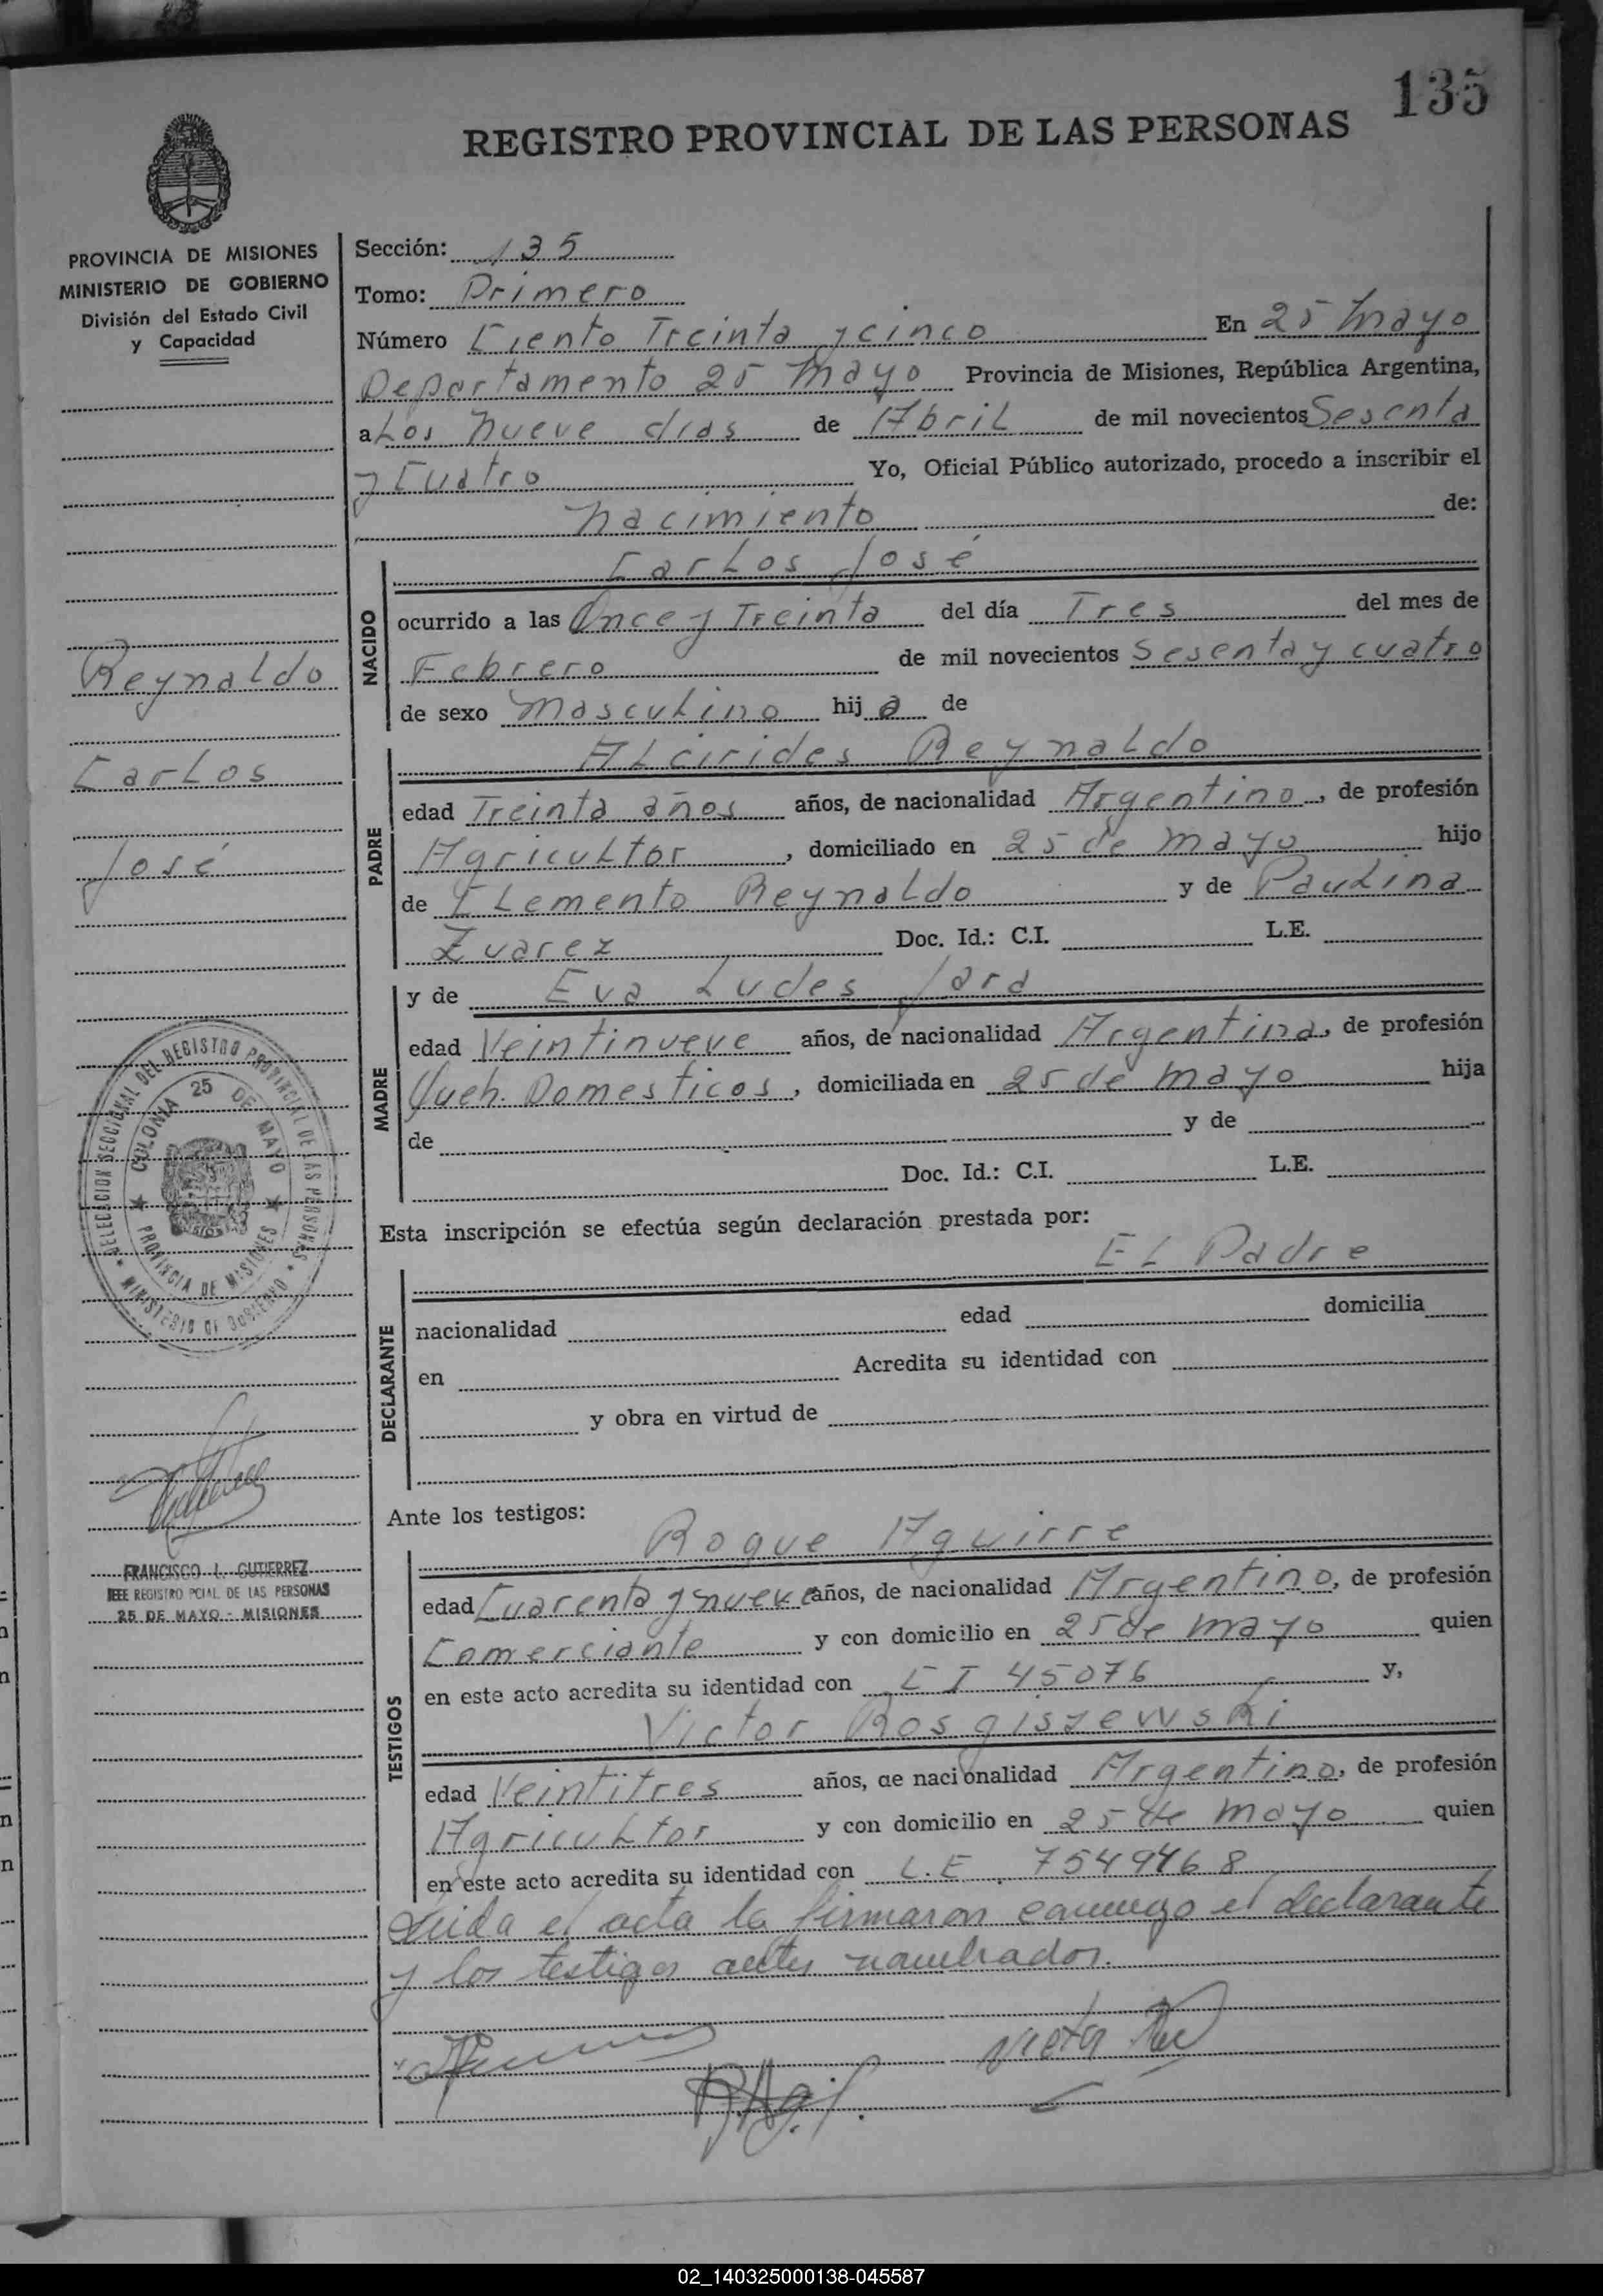 135
REGISTRO PROVINCIAL DE LAS PERSONAS
PROVINCIA DE MISIONES
MINISTERIO DE GOBIERNO
División del Estado Civil
y Capacidad
Reynaldo
Carlos
José
DELEGACION SECCIONAL DEL REGISTRO PROVINCIAL DE LAS PERSONAS
MINISTERIO DE GOBIERNO
COLONIA 25 DE MAYO
PROVINCIA DE MISIONES
FRANCISCO L. GUTIERREZ
JEFE REGISTRO PCIAL DE LAS PERSONAS
25 DE MAYO - MISIONES
Sección: 135
Tomo: Primero
Número Ciento Treinta y cinco En 25 Mayo
Departamento 25 Mayo Provincia de Misiones, República Argentina,
a Los nueve dias de Abril de mil novecientos Sesenta
y Cuatro Yo, Oficial Público autorizado, procedo a inscribir el
nacimiento de:
NACIDO
Carlos José
ocurrido a las Once y Treinta del día Tres del mes de
Febrero de mil novecientos Sesenta y cuatro
de sexo Masculino hij o de
PADRE
Alcirides Reynaldo
edad Treinta años años, de nacionalidad Argentino, de profesión
Agricultor, domiciliado en 25 de Mayo hijo
de Clemento Reynaldo y de Paulina
Zuarez Doc. Id.: C.I. L.E.
MADRE
y de Eva Ludes Jara
edad Veintinueve años, de nacionalidad Argentina, de profesión
Queh. Domesticos, domiciliada en 25 de Mayo hija
de y de
Doc. Id.: C.I. L.E.
Esta inscripción se efectúa según declaración prestada por:
DECLARANTE
El Padre
nacionalidad edad domicilia
en Acredita su identidad con
y obra en virtud de
Ante los testigos:
TESTIGOS
Roque Aguirre
edad Cuarenta y nueve años, de nacionalidad Argentino, de profesión
Comerciante y con domicilio en 25 de Mayo quien
en este acto acredita su identidad con C I 45076 y,
Victor Rosgiszewski
edad Veintitres años, de nacionalidad Argentino, de profesión
Agricultor y con domicilio en 25 de Mayo quien
en este acto acredita su identidad con L.E. 7549468
Leida el acta la firmaron conmigo el declarante
y los testigos antes nombrados.
02_140325000138-045587